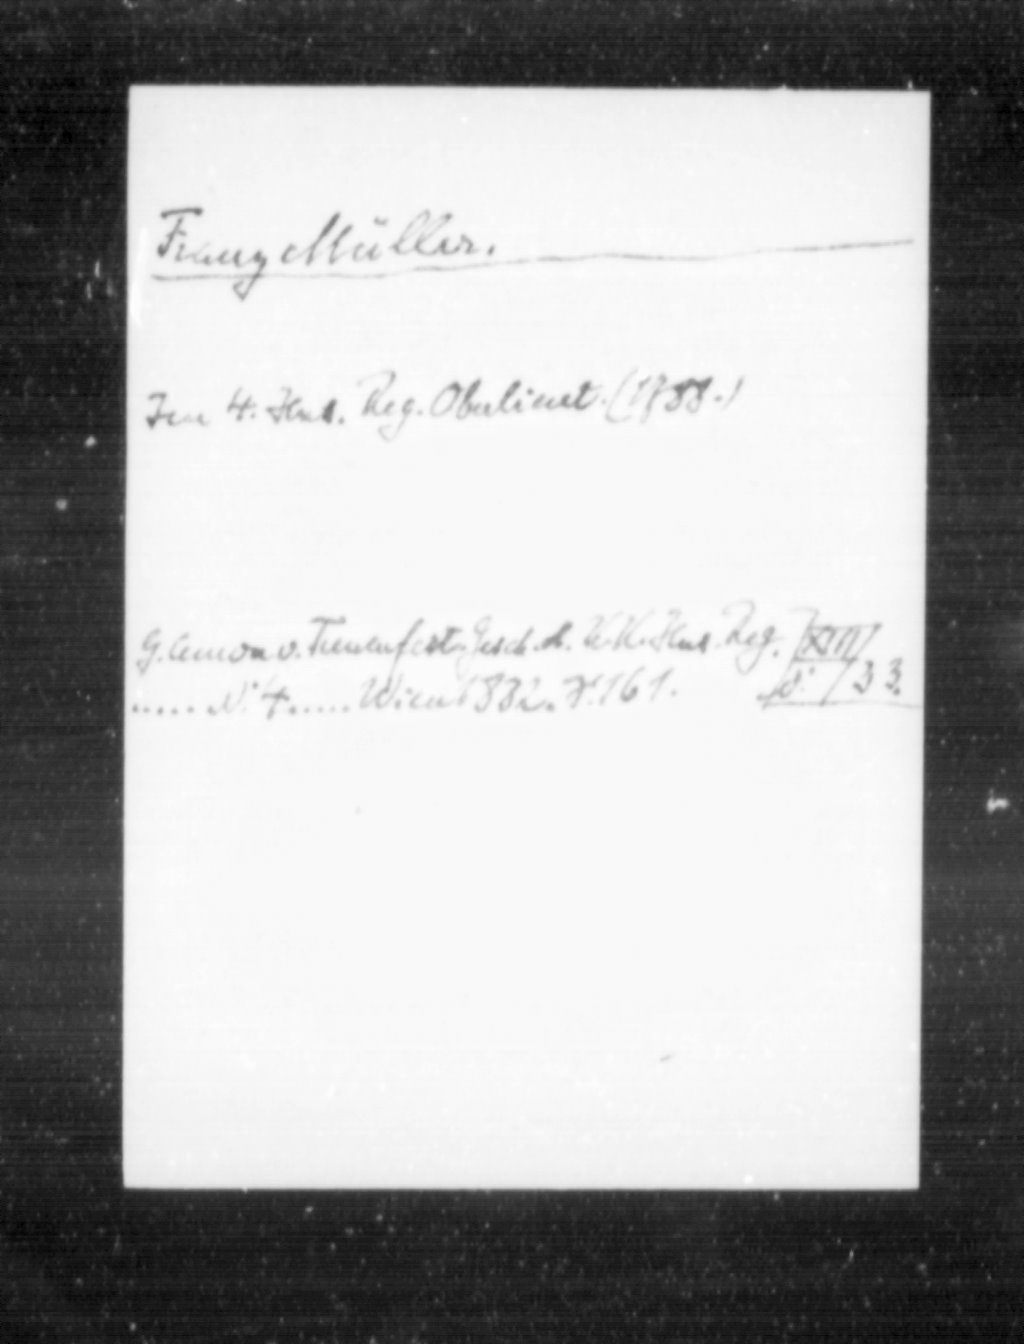 Franz Müller.
Im 4. Hus. Reg. Oberlieut. (1788.)
G. Amon v. Treuenfest. Gesch. d. K. K. Hus. Reg. XIII
..... N. 4 ..... Wien 1882. S. 161. N: 733.